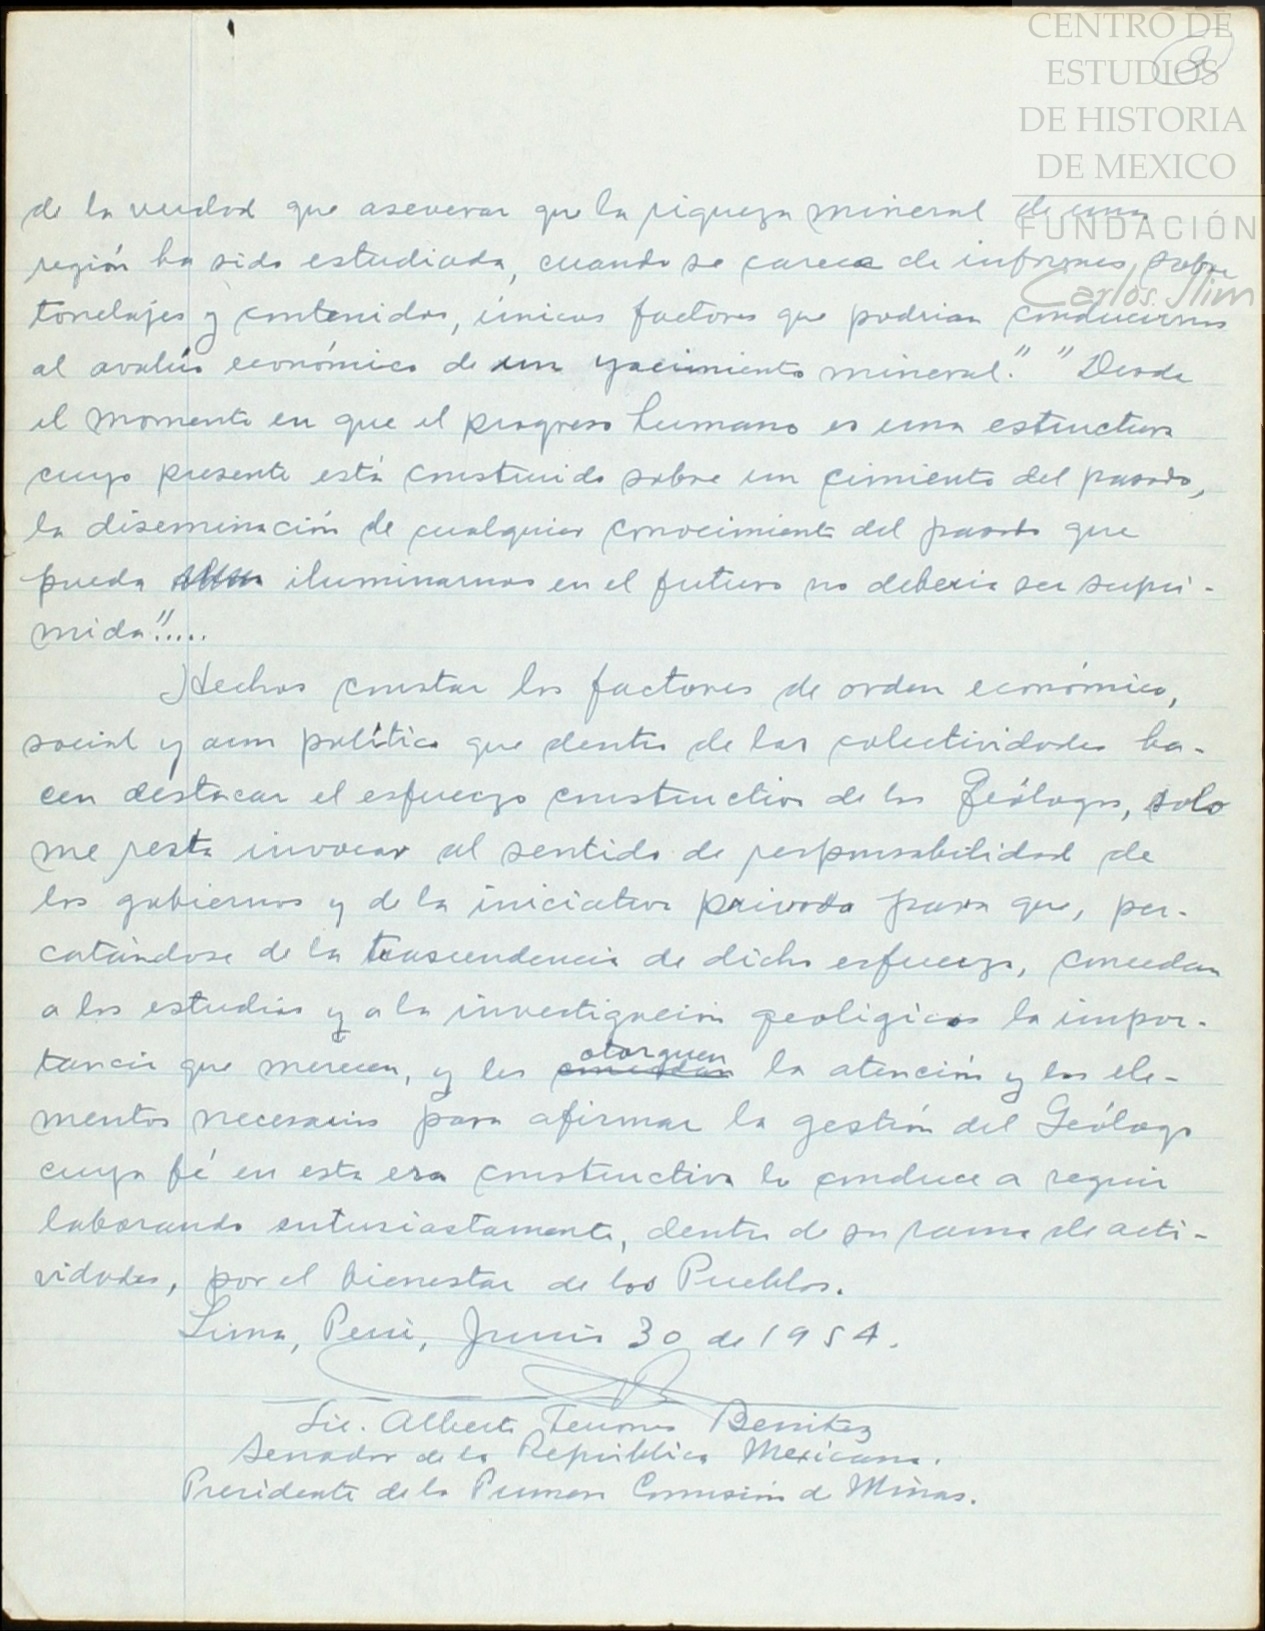 CENTRO DE
ESTUDIOS
DE HISTORIA
DE MEXICO
FUNDACIÓN
Carlos Slim
de la verdad que aseverar que la riqueza mineral de una
región ha sido estudiada, cuando se carece de informes sobre
tonelajes y contenidos, únicos factores que podrian conducirnos
al avalúo económico de un yacimiento mineral." "Desde
el momento en que el progreso humano es una estructura
cuyo presente está construido sobre un cimiento del pasado,
la diseminación de cualquier conocimiento del pasado que
pueda iluminarnos en el futuro no deberia ser supri-
mida".....
Hechos constar los factores de orden económico,
social y aun político que dentro de las colectividades ha-
cen destacar el esfuerzo constructivo de los Geólogos, solo
me resta invocar al sentido de responsabilidad de
los gobiernos y de la iniciativa privada para que, per-
catándose de la trascendencia de dicho esfuerzo, concedan
a los estudios y a la investigación geológicos la impor-
tancia que merecen, y les otorguen la atención y los ele-
mentos necesarios para afirmar la gestión del Geólogo
cuya fé en esta era constructiva lo conduce a seguir
laborando entusiastamente, dentro de su rama de acti-
vidades, por el bienestar de los Pueblos.
Lima, Perú, Junio 30 de 1954.
Lic. Alberto Terrones Benitez
Senador de la República Mexicana.
Presidente de la Primera Comisión de Minas.